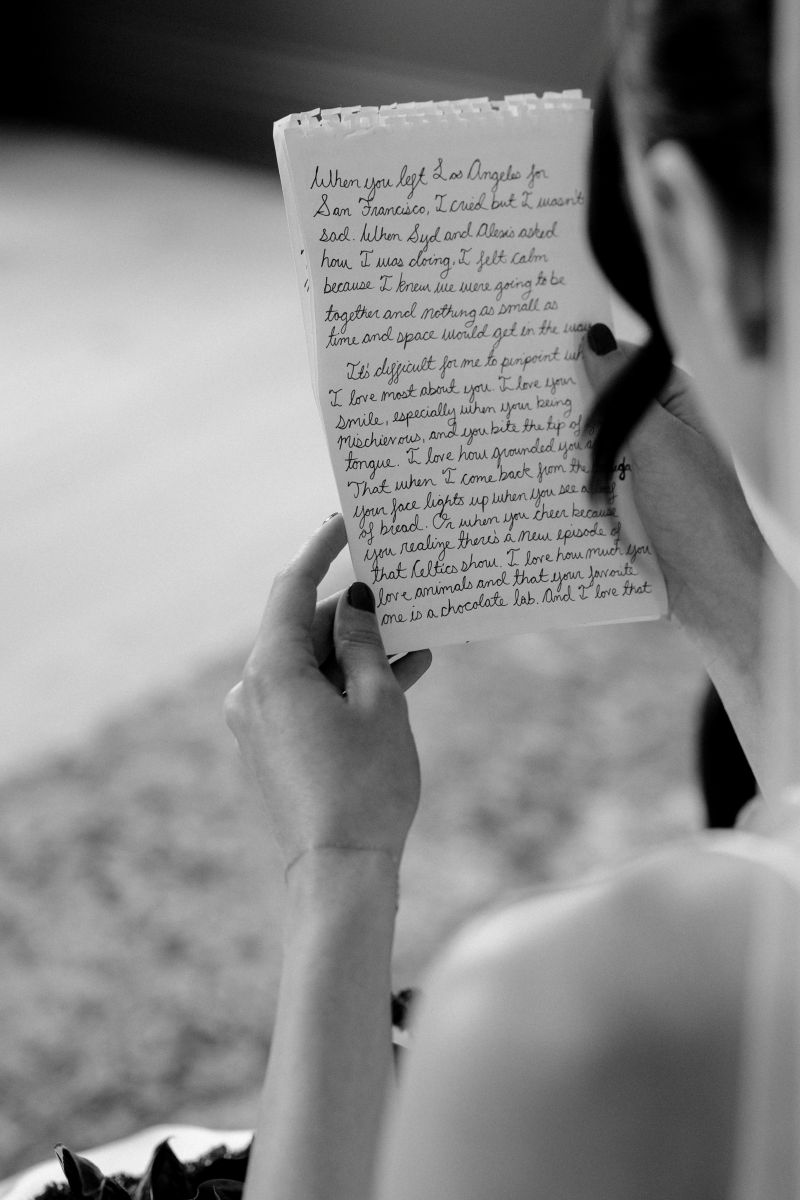 When you left Los Angeles for
San Francisco, I cried but I wasn't
sad. When Syd and Alexis asked
how I was doing, I felt calm
because I knew we were going to be
together and nothing as small as
time and space would get in the way
It's difficult for me to pinpoint
I love most about you. I love your
smile, especially when your being
mischievous, and you bite the tip of
tongue. I love how grounded you
That when I come back from the
your face lights up when you see a
of bread. Or when you cheer because
you realize there's a new episode of
that Celtics show. I love how much you
love animals and that your favorite
one is a chocolate lab. And I love that